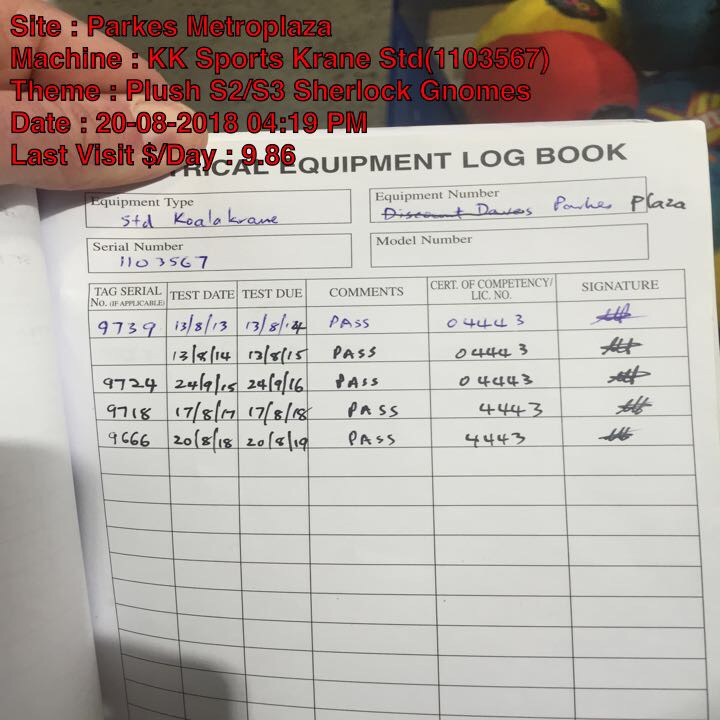 Site : Parkes Metroplaza
Machine : KK Sports Krane Std(1103567)
Theme : Plush S2/S3 Sherlock Gnomes
Date : 20-08-2018 04:19 PM
Last Visit $/Day : 9.86
TRICAL EQUIPMENT LOG BOOK
Equipment Type
Std Koalakrane
Equipment Number
Discount Daves Parkes Plaza
Serial Number
1103567
Model Number
TAG SERIAL No. (IF APPLICABLE) TEST DATE TEST DUE COMMENTS CERT. OF COMPETENCY/ LIC. NO. SIGNATURE
9739 13/8/13 13/8/14 PASS 04443
13/8/14 13/8/15 PASS 04443
9724 24/9/15 24/9/16 PASS 04443
9718 17/8/17 17/8/18 PASS 4443
9666 20/8/18 20/8/19 PASS 4443